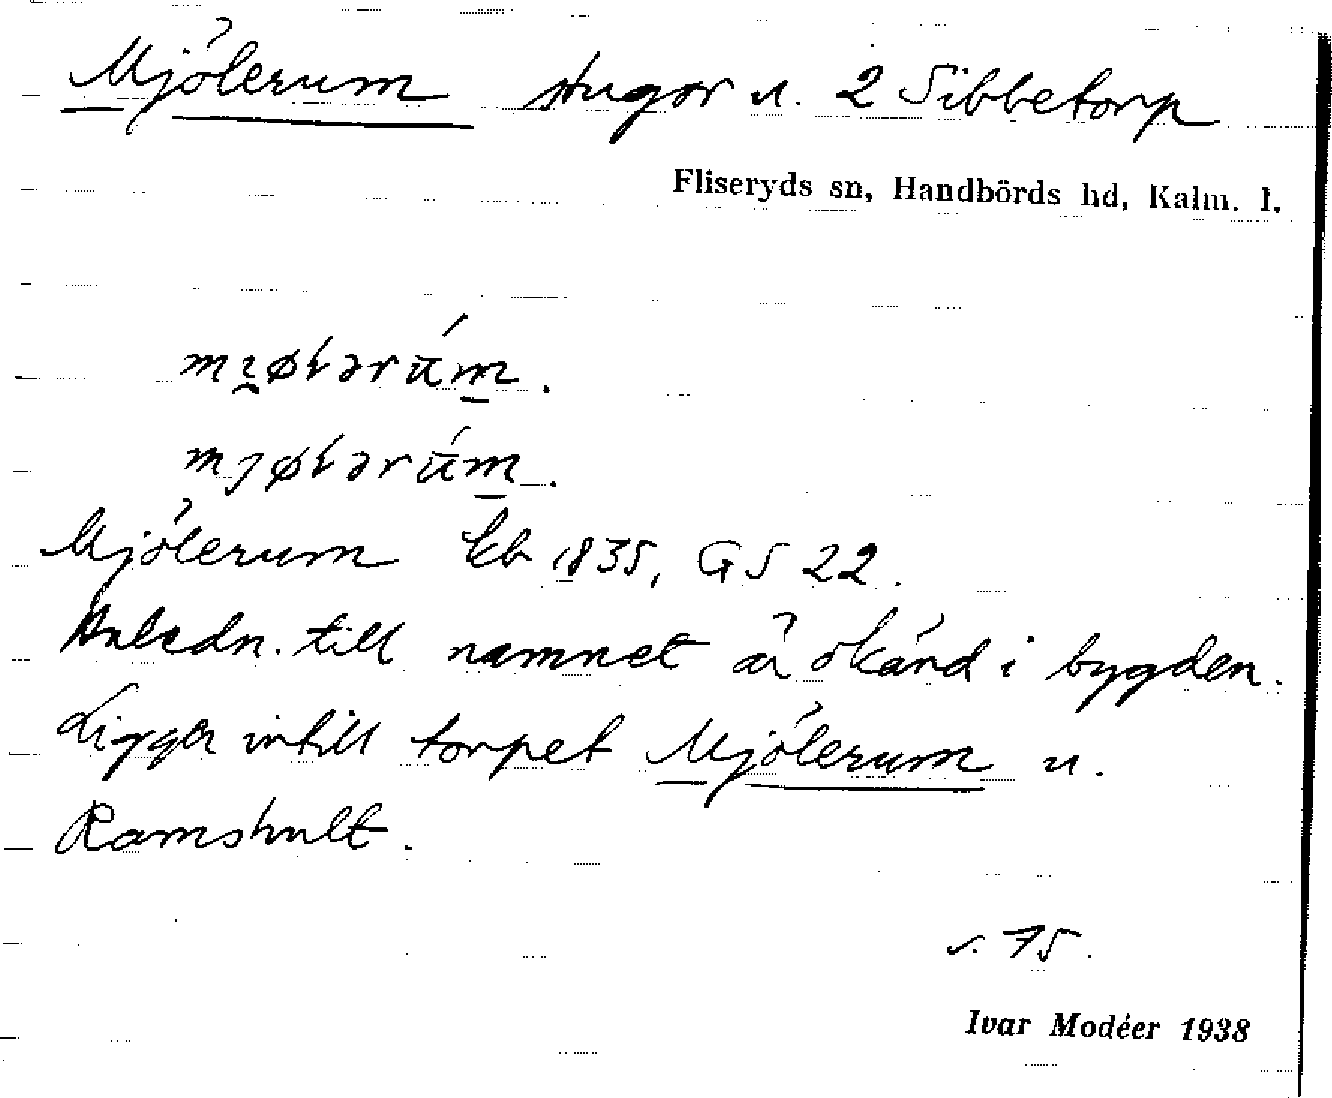 Mjölerum stugor u. 2 Sibbetorp
Fliseryds sn, Handbörds hd, Kalm. l.
Mjölerum kb 1835, GS 22.
Anledn. till namnet är okänd i bygden.
Ligger intill torpet Mjölerum u.
Ramshult.
s. 75.
Ivar Modéer 1938